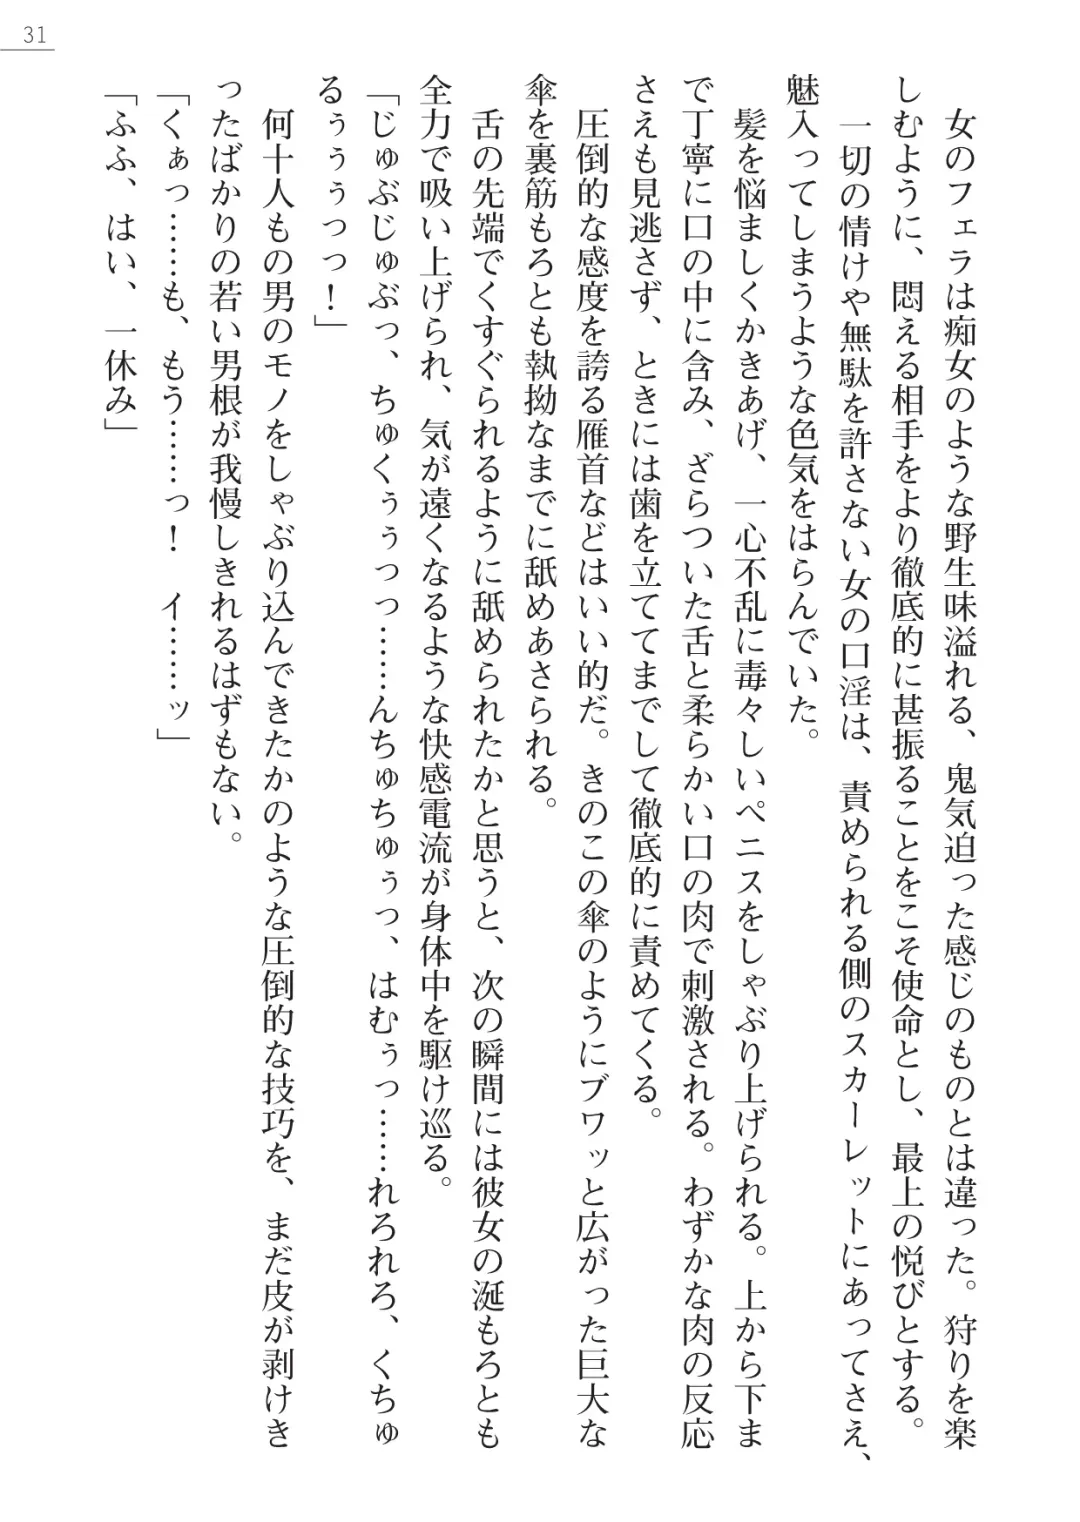 31
女のフェラは痴女のような野生味溢れる、鬼気迫った感じのものとは違った。狩りを楽
しむように、悶える相手をより徹底的に甚振ることをこそ使命とし、最上の悦びとする。
一切の情けや無駄を許さない女の口淫は、責められる側のスカーレットにあってさえ、
魅入ってしまうような色気をはらんでいた。
髪を悩ましくかきあげ、一心不乱に毒々しいペニスをしゃぶり上げられる。上から下ま
で丁寧に口の中に含み、ざらついた舌と柔らかい口の肉で刺激される。わずかな肉の反応
さえも見逃さず、ときには歯を立ててまでして徹底的に責めてくる。
圧倒的な感度を誇る雁首などはいい的だ。きのこの傘のようにブワッと広がった巨大な
傘を裏筋もろとも執拗なまでに舐めあさられる。
舌の先端でくすぐられるように舐められたかと思うと、次の瞬間には彼女の涎もろとも
全力で吸い上げられ、気が遠くなるような快感電流が身体中を駆け巡る。
「じゅぶじゅぶっ、ちゅくぅぅっっ……んちゅちゅぅっ、はむぅっ……れろれろ、くちゅ
るぅぅぅっっ！」
何十人もの男のモノをしゃぶり込んできたかのような圧倒的な技巧を、まだ皮が剥けき
ったばかりの若い男根が我慢しきれるはずもない。
「くぁっ……も、もう……っ！　イ……ッ」
「ふふ、はい、一休み」